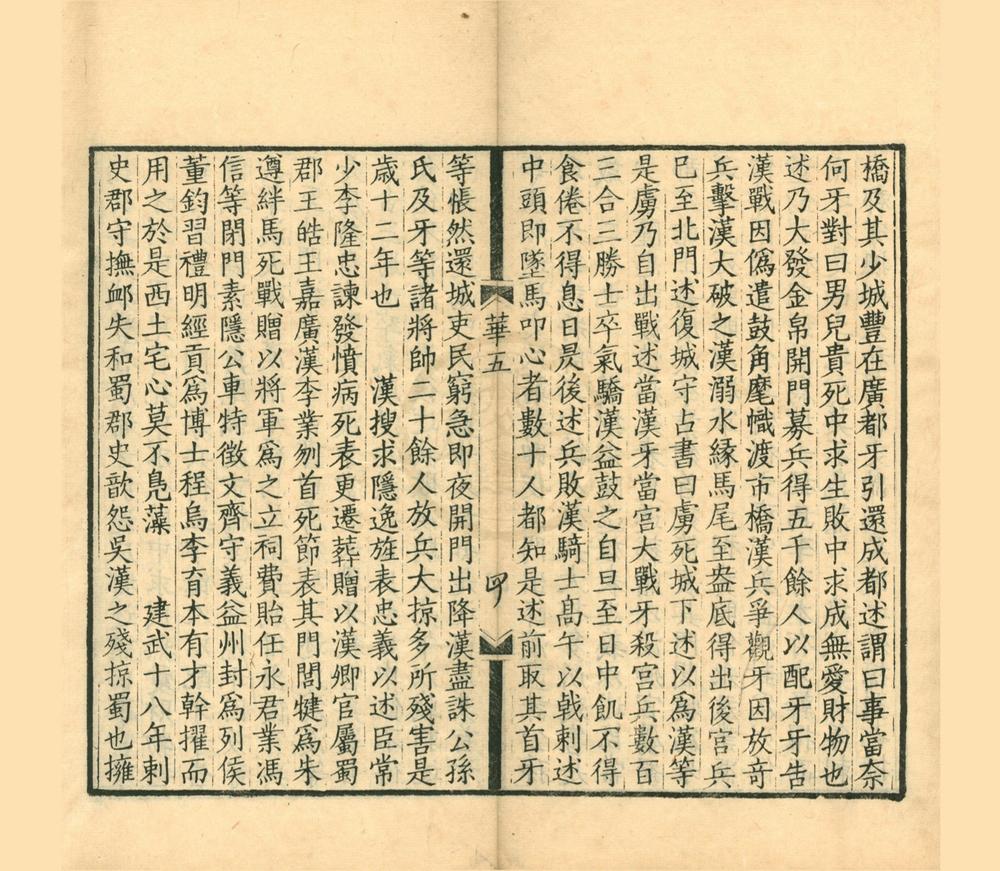 橋及其少城豐在廣都牙引還成都述謂曰事當奈
何牙對曰男兒貴死中求生敗中求成無愛財物也
述乃大發金帛開門募兵得五千餘人以配牙牙告
漢戰因僞遣鼓角麾幟渡市橋漢兵爭觀牙因放奇
兵擊漢大破之漢溺水緣馬尾至盎底得出後宫兵
已至北門述復城守占書曰虜死城下述以爲漢等
是虜乃自出戰述當漢牙當宫大戰牙殺宫兵數百
三合三勝士卒氣驕漢益鼓之自旦至日中飢不得
食倦不得息日昃後述兵敗漢騎士髙午以戟刺述
中頭即墜馬叩心者數十人都知是述前取其首牙
華五
四
等悵然還城吏民窮急即夜開門出降漢盡誅公孫
氏及牙等諸將帥二十餘人放兵大掠多所殘害是
歲十二年也 漢搜求隱逸旌表忠義以述臣常
少李隆忠諫發憤病死表更遷葬贈以漢卿官屬蜀
郡王皓王嘉廣漢李業刎首死節表其門閭犍爲朱
遵絆馬死戰贈以將軍爲之立祠費貽任永君業馮
信等閉門素隱公車特徴文齊守義益州封爲列侯
董鈞習禮明經貢爲博士程烏李育本有才幹擢而
用之於是西土宅心莫不鳧藻 建武十八年刺
史郡守撫衈失和蜀郡史歆怨吳漢之殘掠蜀也擁